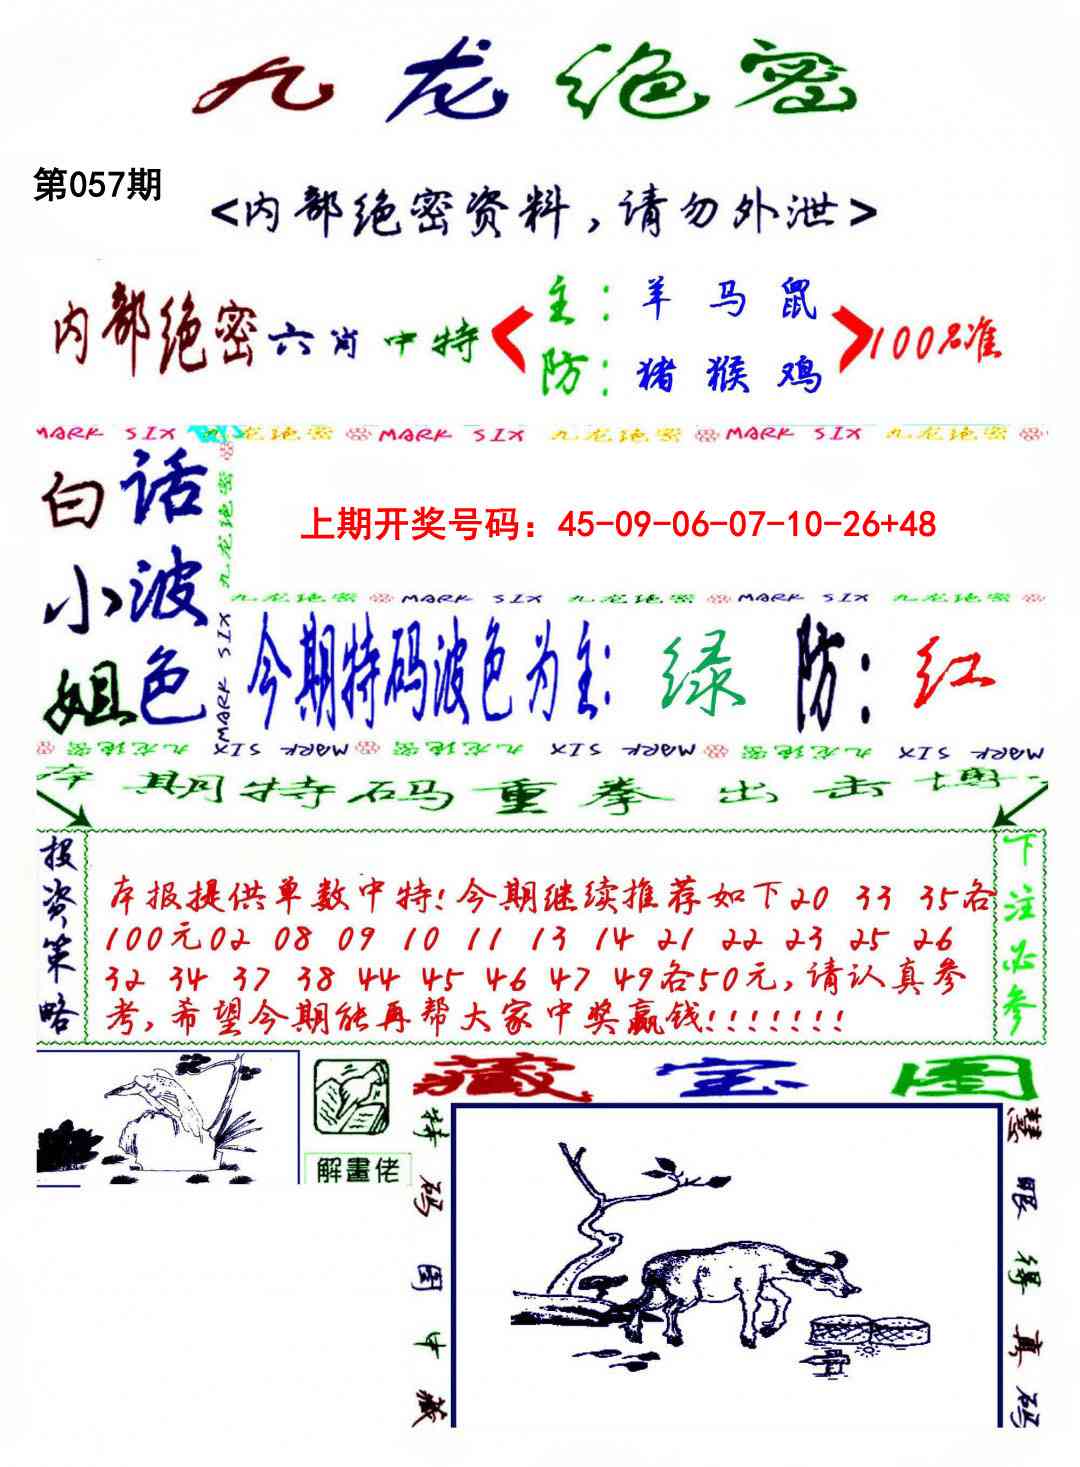 九龙绝密
第057期
<内部绝密资料,请勿外泄>
内部绝密六肖中特
主:羊 马 鼠
防:猪 猴 鸡
100%准
MARK SIX 九龙绝密 MARK SIX 九龙绝密 MARK SIX 九龙绝密
白话
小波
姐色
九龙绝密
MARK SIX
上期开奖号码：45-09-06-07-10-26+48
九龙绝密 MARK SIX 九龙绝密 MARK SIX 九龙绝密
今期特码波色为主:绿 防:红
九龙绝密 MARK SIX 九龙绝密 MARK SIX 九龙绝密 MARK SIX
本期特码重拳出击博
投资策略
本报提供单数中特!今期继续推荐如下20 33 35各
100元02 08 09 10 11 13 14 21 22 23 25 26
32 34 37 38 44 45 46 47 49各50元,请认真参
考,希望今期能再帮大家中奖赢钱!!!!!!!
下注必参
解畫佬
藏宝图
特码图中藏
慧眼得真码